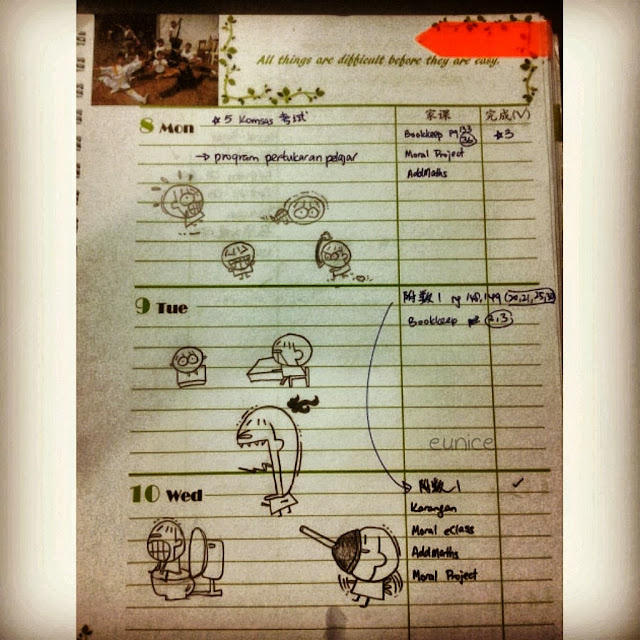 All things are difficult before they are easy.
家课 完成(√)
8 Mon
☆5 Komsas 考试
→ program pertukaran pelajar
Bookkeep pg
☆3
Moral Project
AddMaths
9 Tue
附数1 pg 148, 149
Bookkeep 2,3
eunice
10 Wed
附数1 ✓
Karangan
Moral eClass
AddMaths
Moral Project